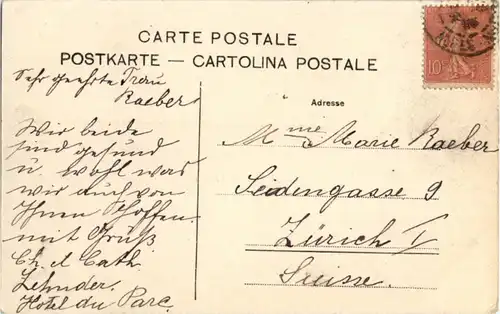 CARTE POSTALE
POSTKARTE — CARTOLINA POSTALE
Sehr geehrte Frau
Raeber
Wir beide
sind gesund
u. wohl was
wir auch von
Ihnen hoffen.
mit Gruß
Ch. & Cath.
Zehnder.
Hotel du Parc.
Adresse
Mme Marie Raeber
Seidengasse 9
Zürich I
Suisse.
10